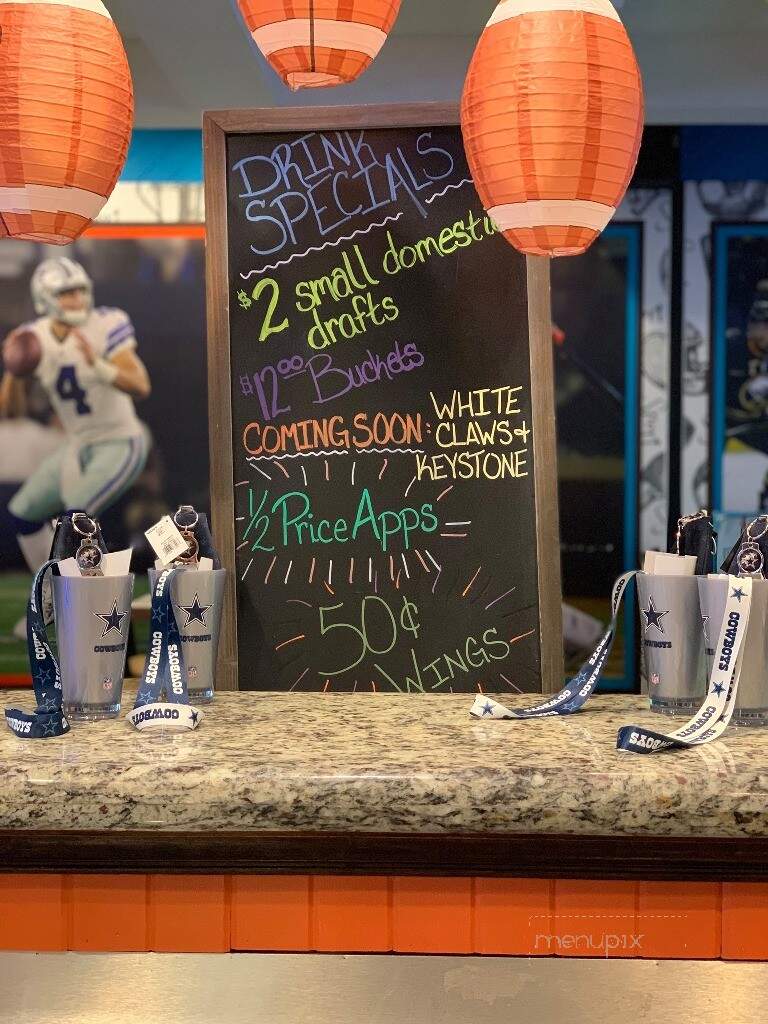 DRINK
SPECIALS
$2 small domestic
drafts
$12.00 Buckets
COMING SOON: WHITE
CLAWS +
KEYSTONE
1/2 Price Apps
50¢
WINGS
4
COWBOYS
COWBOYS
COWBOYS
COWBOYS
COWBOYS
COWBOYS
COWBOYS
COWBOYS
COWBOYS
COWBOYS
COWBOYS
menupix